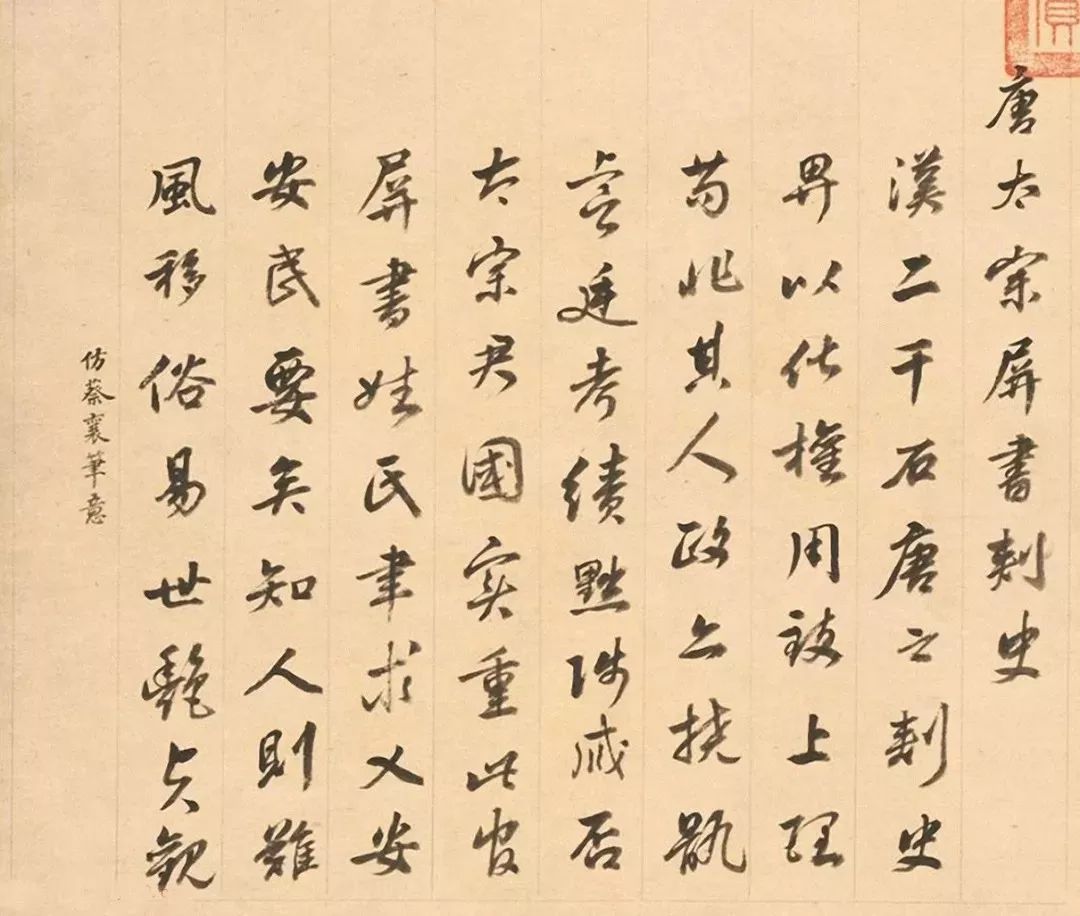 唐太宗屏書刺史
漢二千石唐之刺史
畀以化權用致上理
苟非其人政撓骫
虞廷考績黜陟臧否
太宗君國實重此官
屏書姓氏聿求乂安
安民要矣知人則難
風移俗易世豔貞觀
仿蔡襄筆意